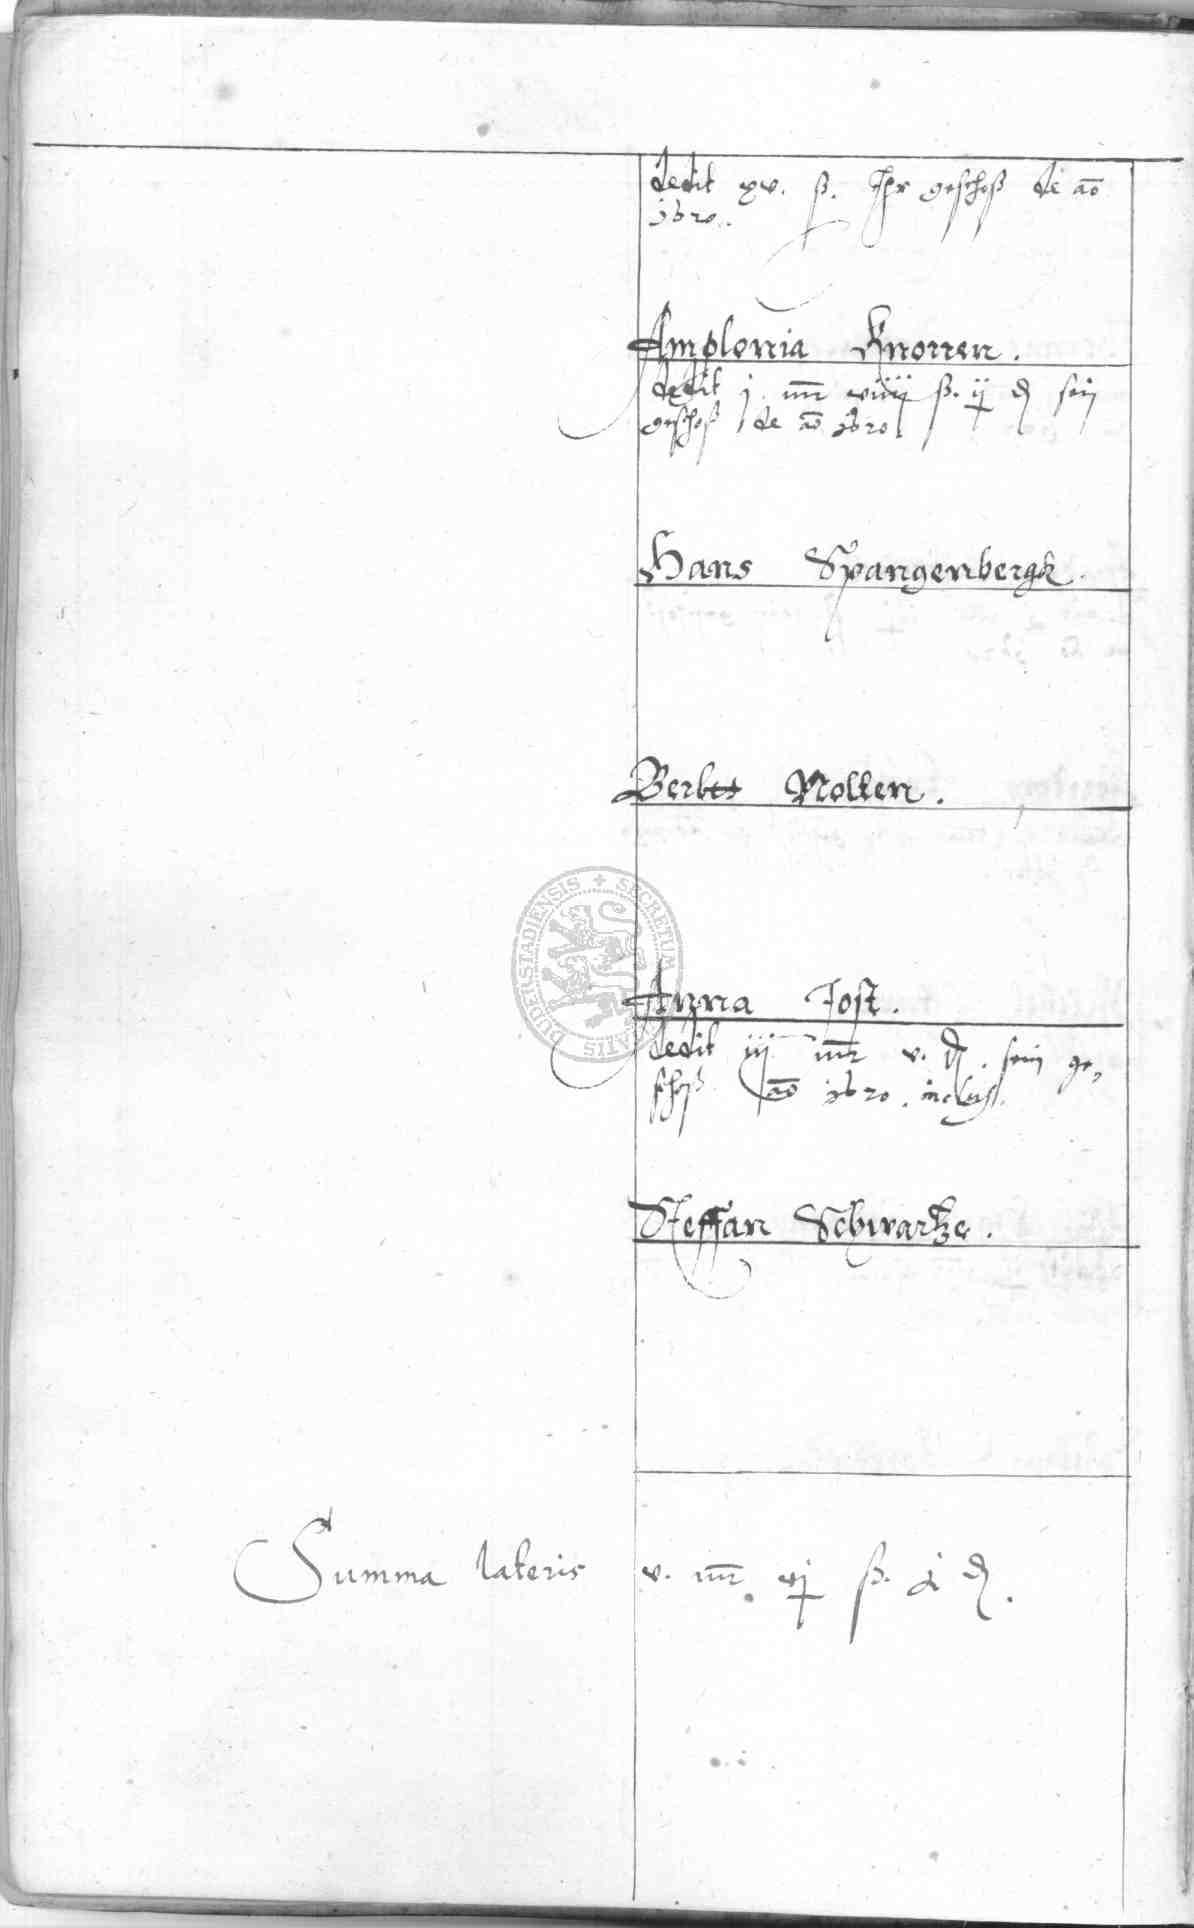 dedit xv. ß. Ihr geschoß de ao
1620.
Amplonia Knorren.
dedit j. mr viiij ß. ij ₰ sein
geschoß de ao 1620
Hans Spangenbergk.
Berltt Nolten.
SECRETUM CIVITATIS DUDERSTADIENSIS
Anna Jost.
dedit iij mr v. ₰. sein ge,
schoß ao 1620. inclus.
Steffan Schwartze.
Summa lateris v. mr ß. ₰.